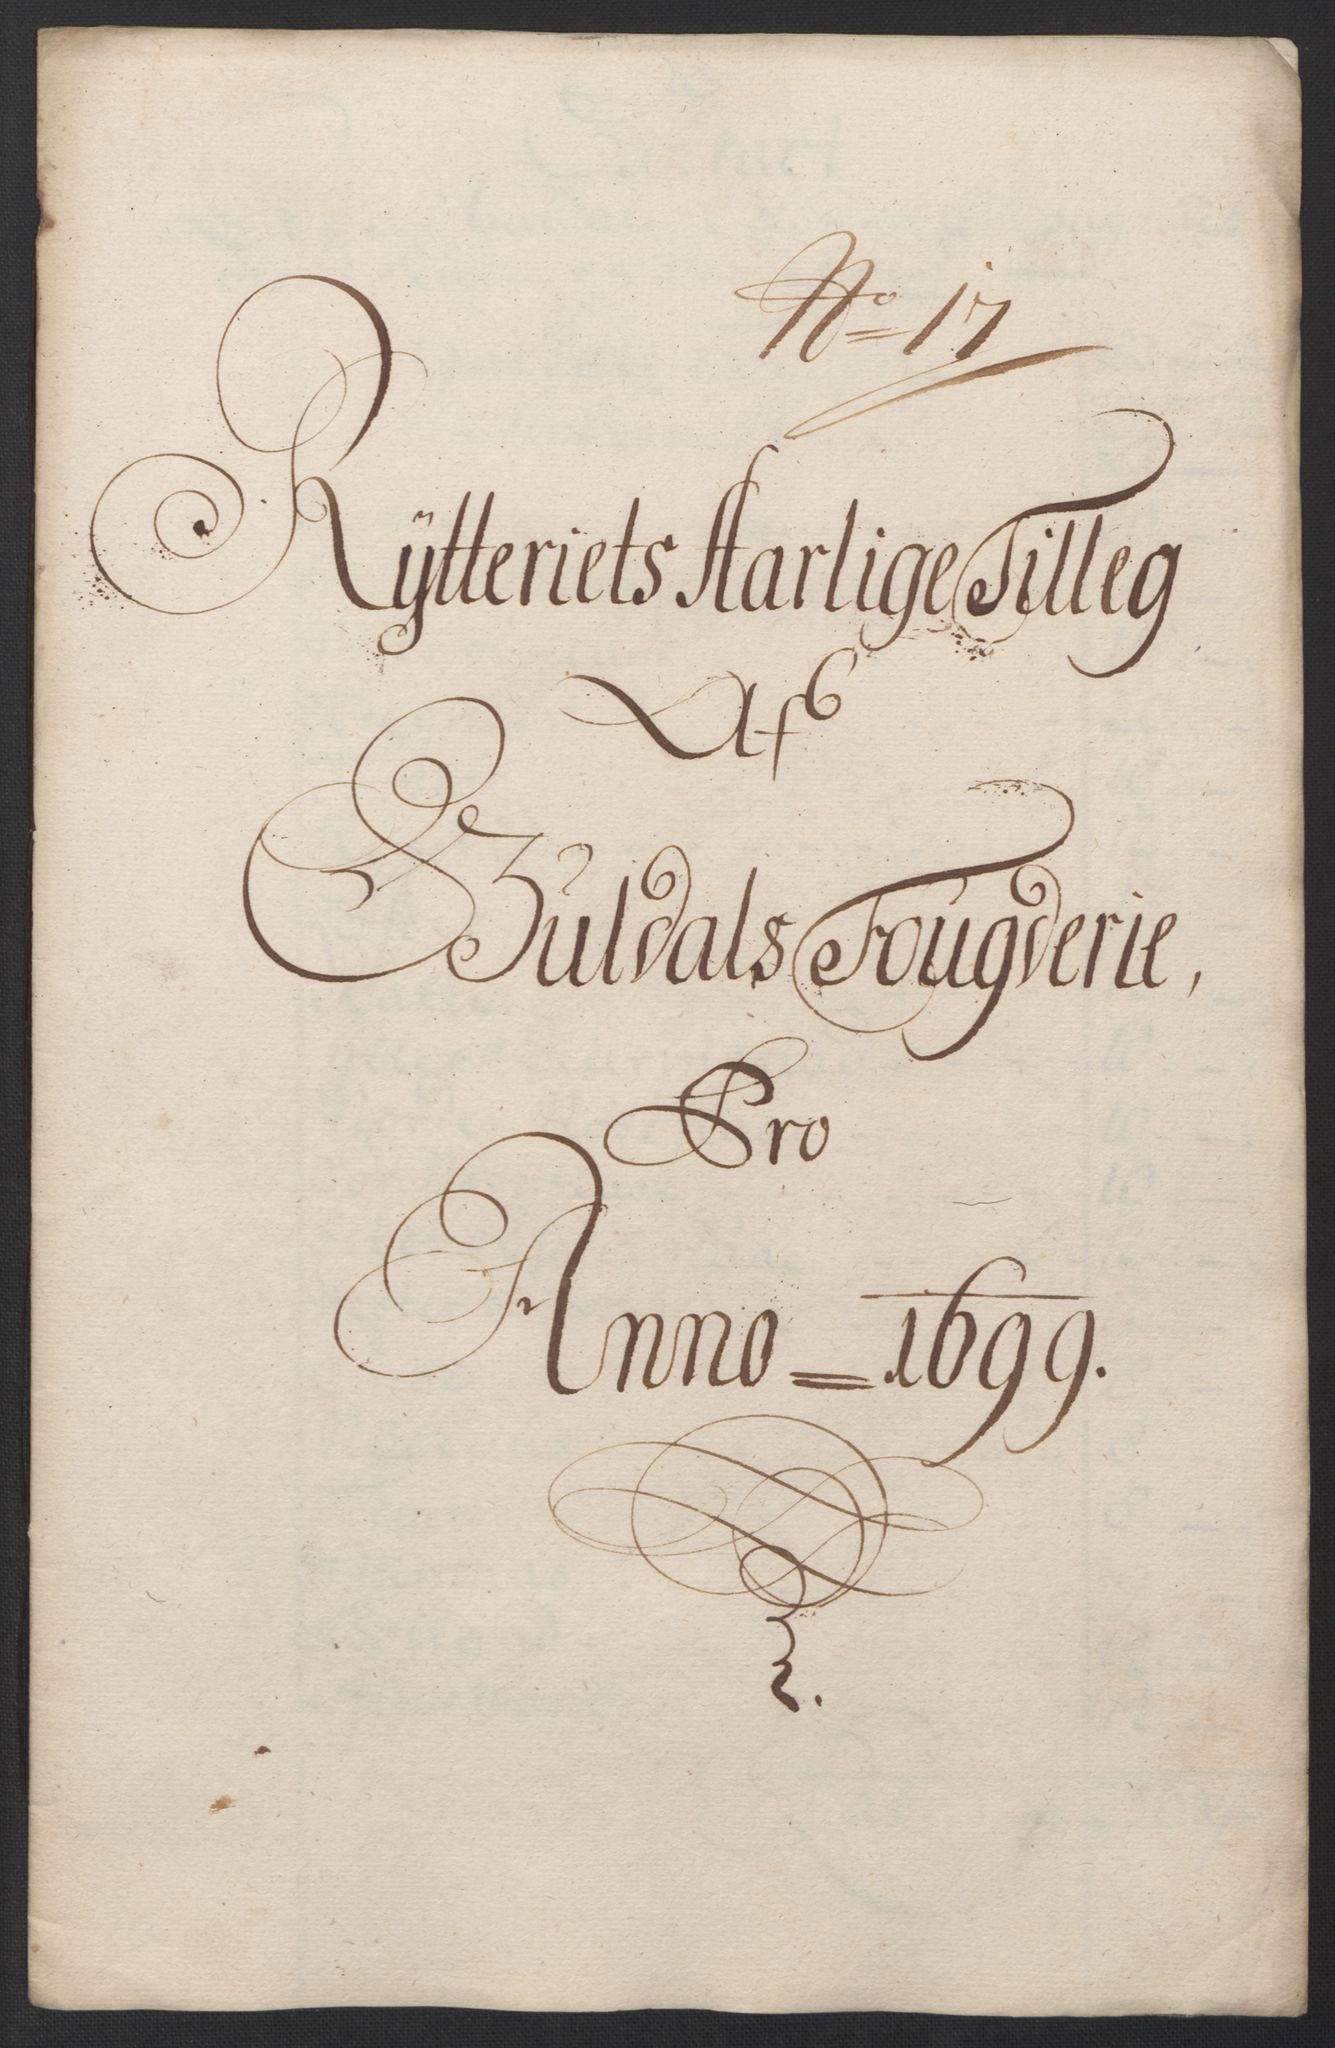 No 17
Rÿtteriets Aarlige Tilleg
Af
Guldals Fougderie,
Pro
Anno = 1699.